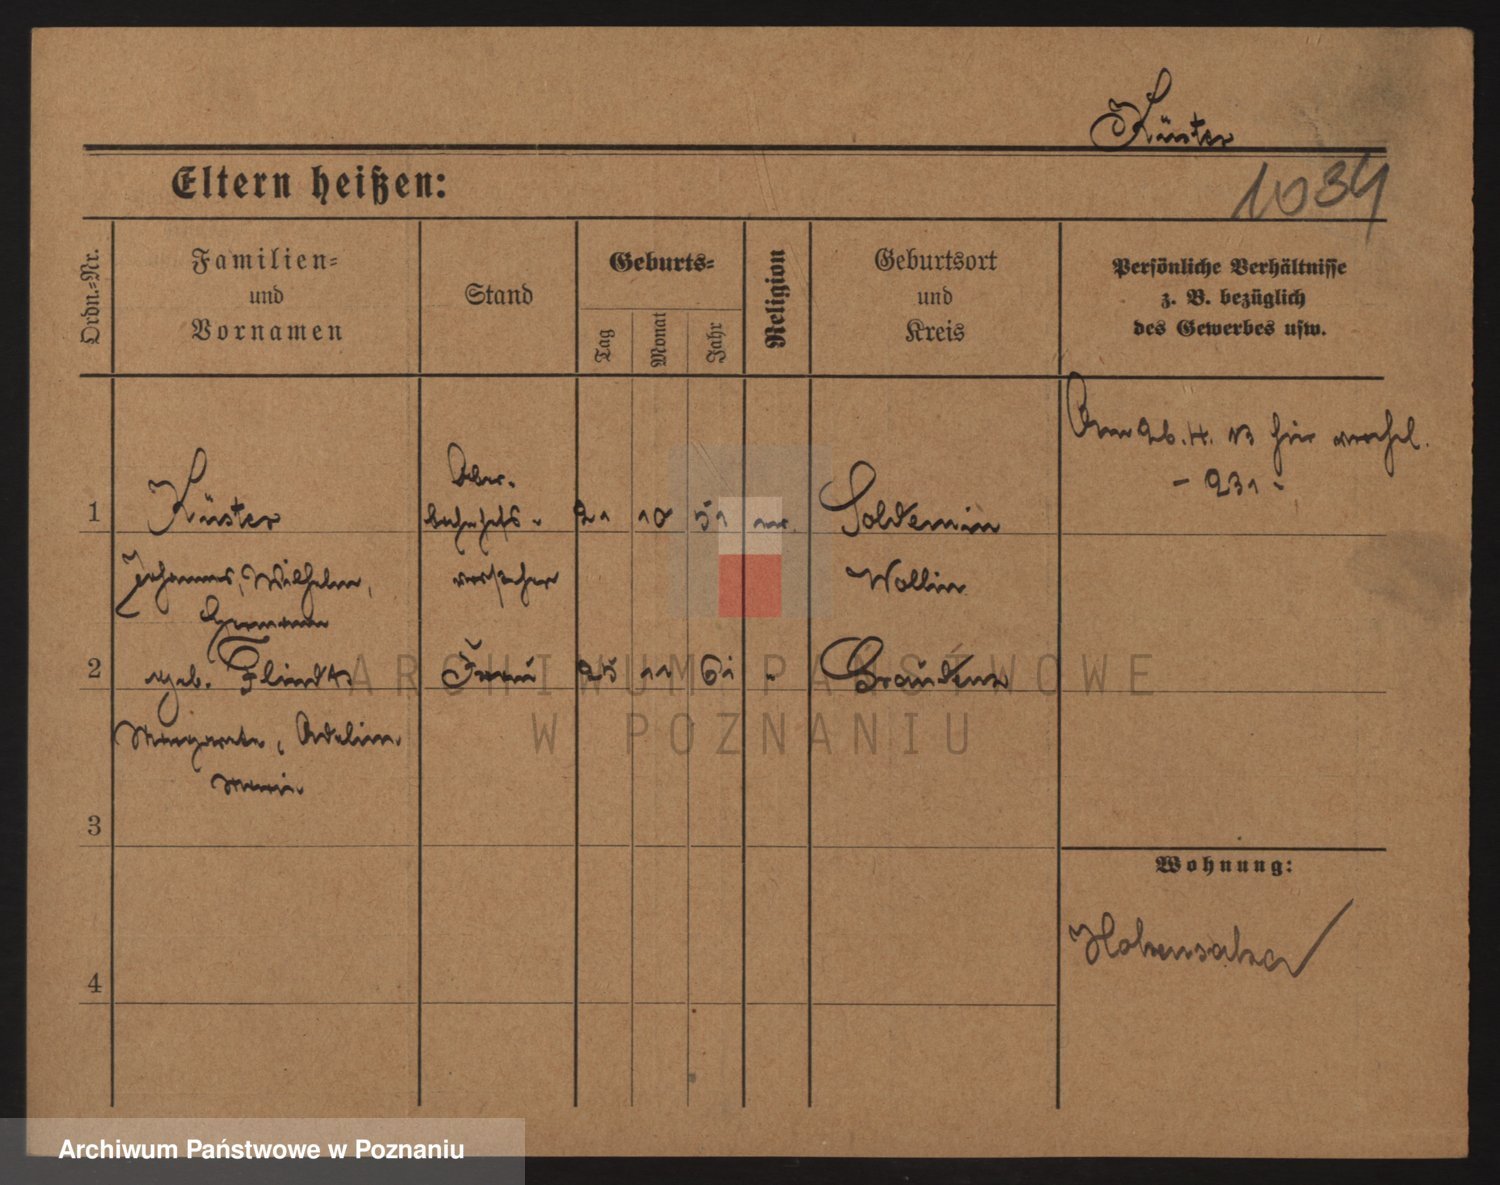 Küster
Eltern heißen:
1034
Ordn.-Nr.
Familien-
und
Vornamen
Stand
Geburts-
Tag
Monat
Jahr
Religion
Geburtsort
und
Kreis
Persönliche Verhältnisse
z. B. bezüglich
des Gewerbes usw.
Am 26. 4. 13 hier
- 231 -
1
Küster
Ober-
bahnhofs-
21 10 51
Soldemin
Johannes, Wilhelm,
vorsteher
Wollin
Hermann
2
geb. Flindt
Frau
25 11 61
"
Graudenz
Margarete, Adeline
Marie
3
Wohnung:
Hohensalza
4
ARCHIWUM PAŃSTWOWE
W POZNANIU
Archiwum Państwowe w Poznaniu